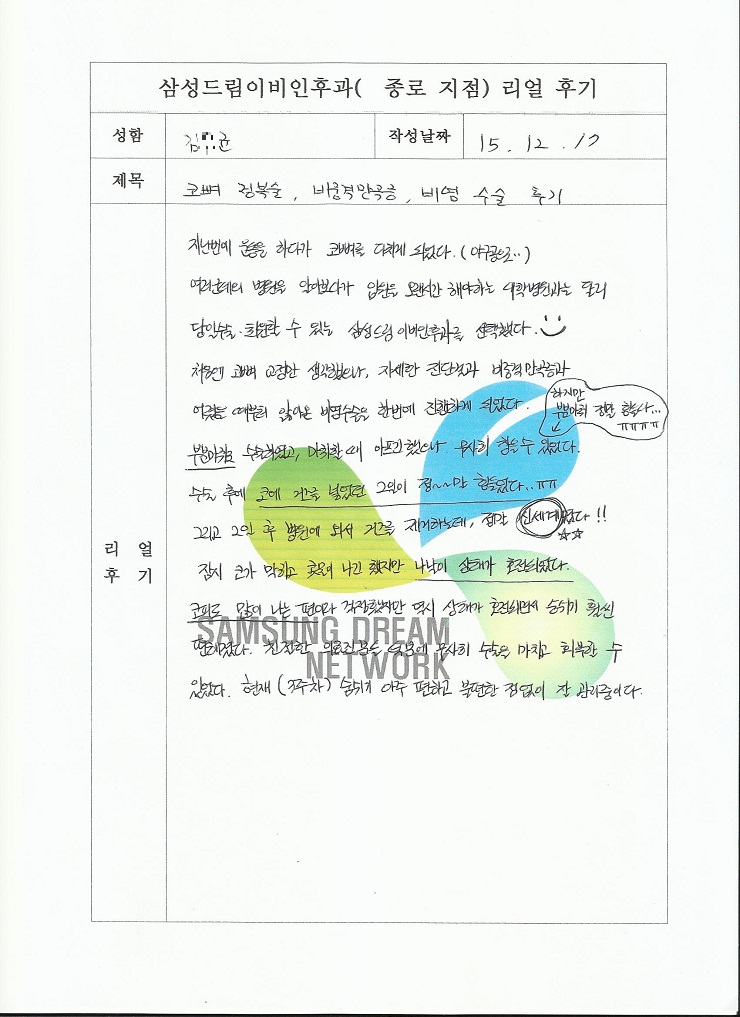 삼성드림이비인후과( 종로 지점) 리얼 후기
성함 김 균 작성날짜 15. 12. 17
제목 코뼈 정복술, 비중격만곡증, 비염 수술 후기
지난번에 운동을 하다가 코뼈를 다치게 되었다. (야구공으로..)
여러군데의 병원을 알아보다가 입원을 오랜시간 해야하는 대학병원과는 달리
당일수술·퇴원할 수 있는 삼성드림이비인후과를 선택했다.
처음엔 코뼈 교정만 생각했으나, 자세한 진단결과 비중격만곡증과
어렸을때부터 앓아온 비염수술을 한번에 진행하게 되었다.
하지만
부분마취 정말 힘듦다...
ㅠㅠㅠㅠ
부분마취로 수술하였고, 마취할때 아프긴했으나 무사히 참을수 있었다.
수술 후에 코에 거즈를 넣었던 2일이 정~~말 힘들었다..ㅠㅠ
그리고 2일 후 병원에 와서 거즈를 제거하는데, 정말 신세계였다!!
리 얼
후 기
잠시 코가 막히고 콧물이 나긴 했지만 나날이 상태가 호전되었다.
코피도 많이 나는 편이라 걱정했지만 역시 상태가 호전되면서 숨쉬기 훨씬
편해졌다. 친절한 의료진분들 덕분에 무사히 수술을 마치고 회복할 수
있었다. 현재 (3주차) 숨쉬기 아주 편하고 불편한 점없이 잘 관리중이다.
SAMSUNG DREAM
NETWORK